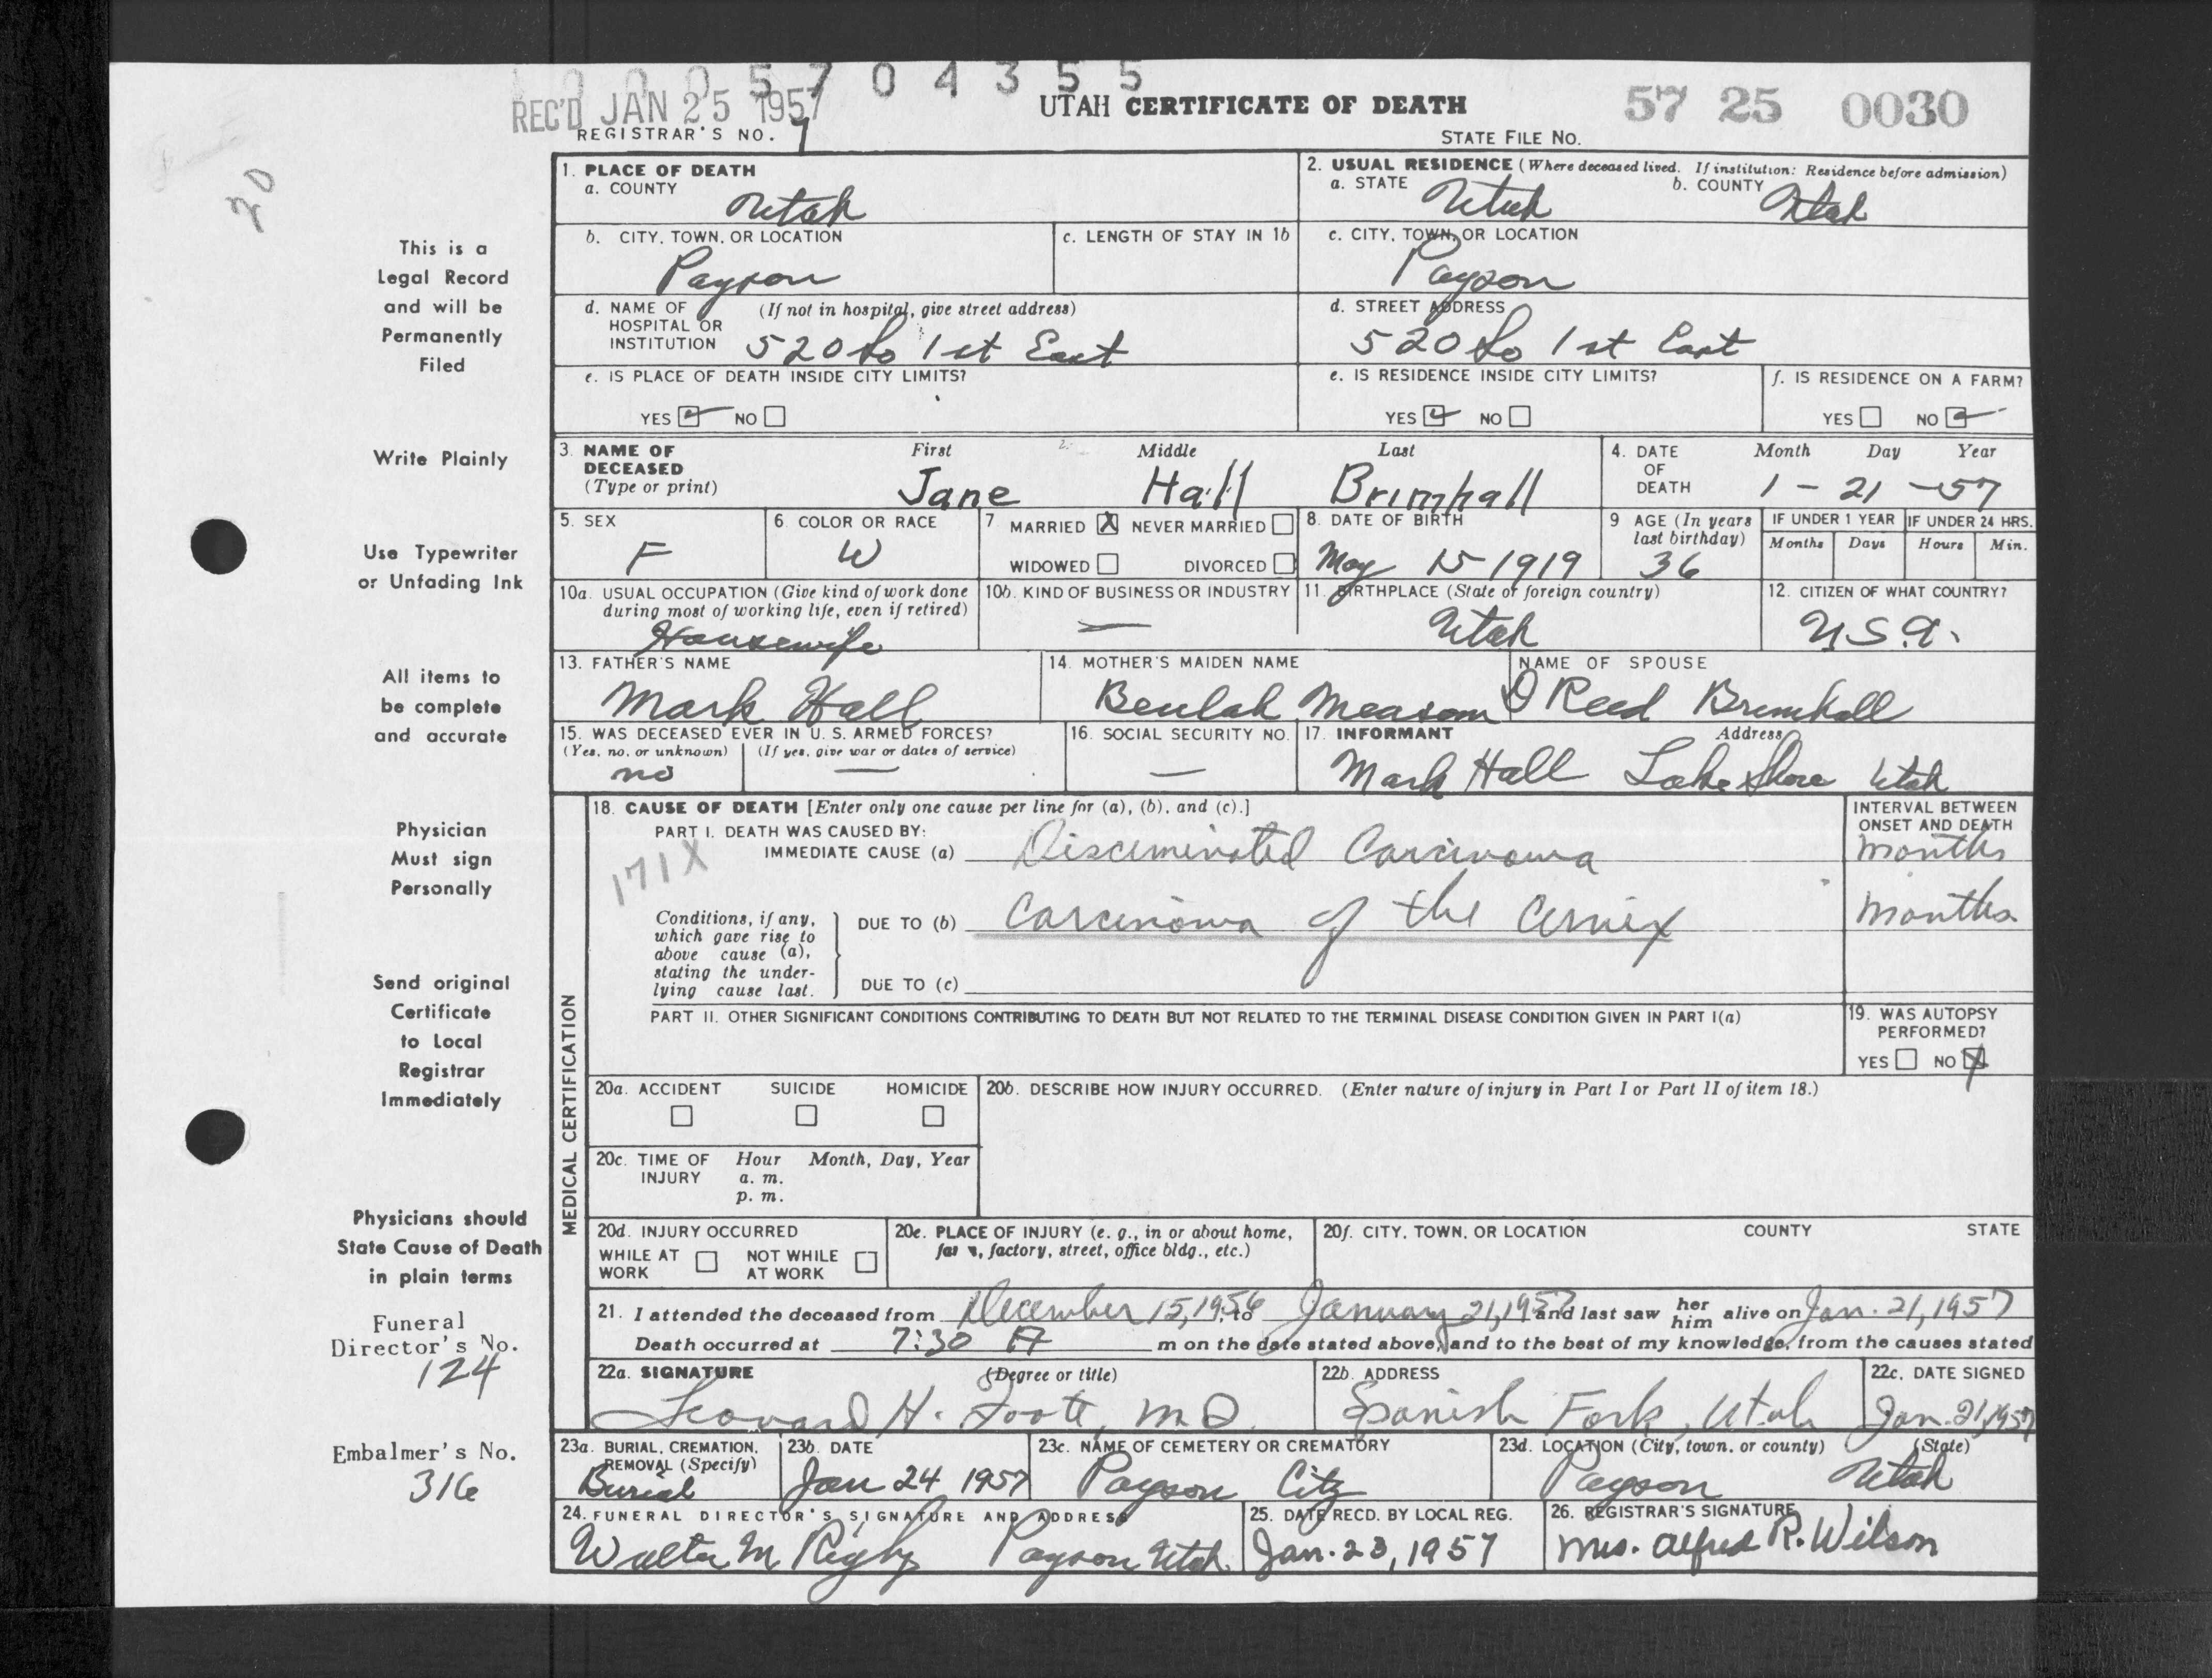 0 0 0 5 7 0 4 3 5 5
REC'D JAN 25 1957
UTAH CERTIFICATE OF DEATH
57 25 0030
REGISTRAR'S NO. 1
STATE FILE NO.
20
This is a
Legal Record
and will be
Permanently
Filed
Write Plainly
Use Typewriter
or Unfading Ink
All items to
be complete
and accurate
Physician
Must sign
Personally
Send original
Certificate
to Local
Registrar
Immediately
Physicians should
State Cause of Death
in plain terms
Funeral
Director's No.
124
Embalmer's No.
316
1. PLACE OF DEATH
a. COUNTY
Utah
2. USUAL RESIDENCE (Where deceased lived. If institution: Residence before admission)
a. STATE Utah b. COUNTY Utah
b. CITY, TOWN, OR LOCATION
Payson
c. LENGTH OF STAY IN 1b
c. CITY, TOWN, OR LOCATION
Payson
d. NAME OF (If not in hospital, give street address)
HOSPITAL OR
INSTITUTION 520 So 1st East
d. STREET ADDRESS
520 So 1st East
e. IS PLACE OF DEATH INSIDE CITY LIMITS?
YES NO
e. IS RESIDENCE INSIDE CITY LIMITS?
YES NO
f. IS RESIDENCE ON A FARM?
YES NO
3. NAME OF
DECEASED
(Type or print)
First Middle Last
Jane Hall Brimhall
4. DATE
OF
DEATH
Month Day Year
1 - 21 - 57
5. SEX
F
6. COLOR OR RACE
W
7 MARRIED X NEVER MARRIED
WIDOWED DIVORCED
8. DATE OF BIRTH
May 15 1919
9 AGE (In years
last birthday)
36
IF UNDER 1 YEAR
Months Days
IF UNDER 24 HRS.
Hours Min.
10a. USUAL OCCUPATION (Give kind of work done
during most of working life, even if retired)
Housewife
10b. KIND OF BUSINESS OR INDUSTRY
—
11. BIRTHPLACE (State or foreign country)
Utah
12. CITIZEN OF WHAT COUNTRY?
U.S.A.
13. FATHER'S NAME
Mark Hall
14. MOTHER'S MAIDEN NAME
Beulah Measom
NAME OF SPOUSE
O Reed Brimhall
15. WAS DECEASED EVER IN U. S. ARMED FORCES?
(Yes, no, or unknown) (If yes, give war or dates of service)
no —
16. SOCIAL SECURITY NO.
—
17. INFORMANT Address
Mark Hall Lake Shore Utah
MEDICAL CERTIFICATION
18. CAUSE OF DEATH [Enter only one cause per line for (a), (b), and (c).]
INTERVAL BETWEEN
ONSET AND DEATH
PART I. DEATH WAS CAUSED BY:
IMMEDIATE CAUSE (a) Disceminated Carcinoma
months
171X
Conditions, if any,
which gave rise to
above cause (a),
stating the under-
lying cause last.
DUE TO (b) Carcinoma of the Cervix
months
DUE TO (c)
PART II. OTHER SIGNIFICANT CONDITIONS CONTRIBUTING TO DEATH BUT NOT RELATED TO THE TERMINAL DISEASE CONDITION GIVEN IN PART I(a)
19. WAS AUTOPSY
PERFORMED?
YES NO X
20a. ACCIDENT SUICIDE HOMICIDE
20b. DESCRIBE HOW INJURY OCCURRED. (Enter nature of injury in Part I or Part II of item 18.)
20c. TIME OF Hour Month, Day, Year
INJURY a. m.
p. m.
20d. INJURY OCCURRED
WHILE AT NOT WHILE
WORK AT WORK
20e. PLACE OF INJURY (e. g., in or about home,
factory, street, office bldg., etc.)
20f. CITY, TOWN, OR LOCATION COUNTY STATE
21. I attended the deceased from December 15, 1956, to January 21, 1957 and last saw her him alive on Jan. 21, 1957
Death occurred at 7:30 A m on the date stated above, and to the best of my knowledge, from the causes stated
22a. SIGNATURE (Degree or title)
Leonard H. Foote, M D
22b. ADDRESS
Spanish Fork, Utah
22c. DATE SIGNED
Jan. 21, 1957
23a. BURIAL, CREMATION,
REMOVAL (Specify)
Burial
23b. DATE
Jan 24 1957
23c. NAME OF CEMETERY OR CREMATORY
Payson City
23d. LOCATION (City, town, or county) (State)
Payson Utah
24. FUNERAL DIRECTOR'S SIGNATURE AND ADDRESS
Walter M Rigby Payson Utah.
25. DATE RECD. BY LOCAL REG.
Jan. 23, 1957
26. REGISTRAR'S SIGNATURE
Mrs. Alfred R. Wilson